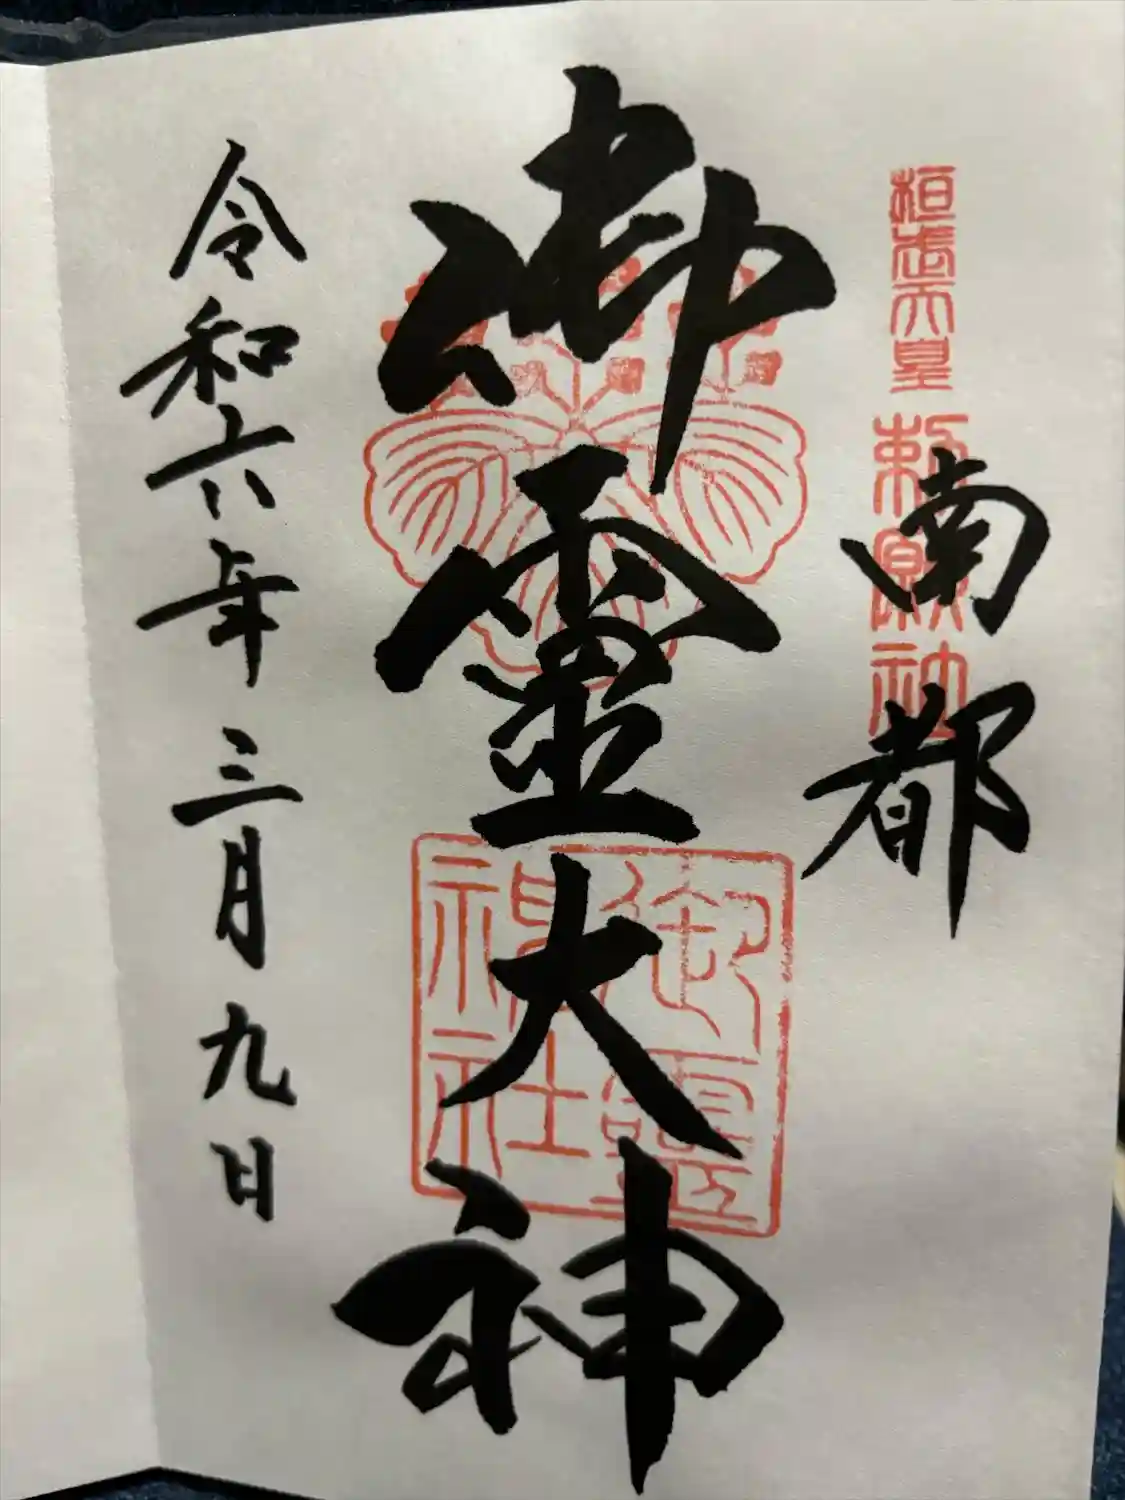 桓武天皇勅願社
南都
御霊大神
御霊神社
令和六年三月九日